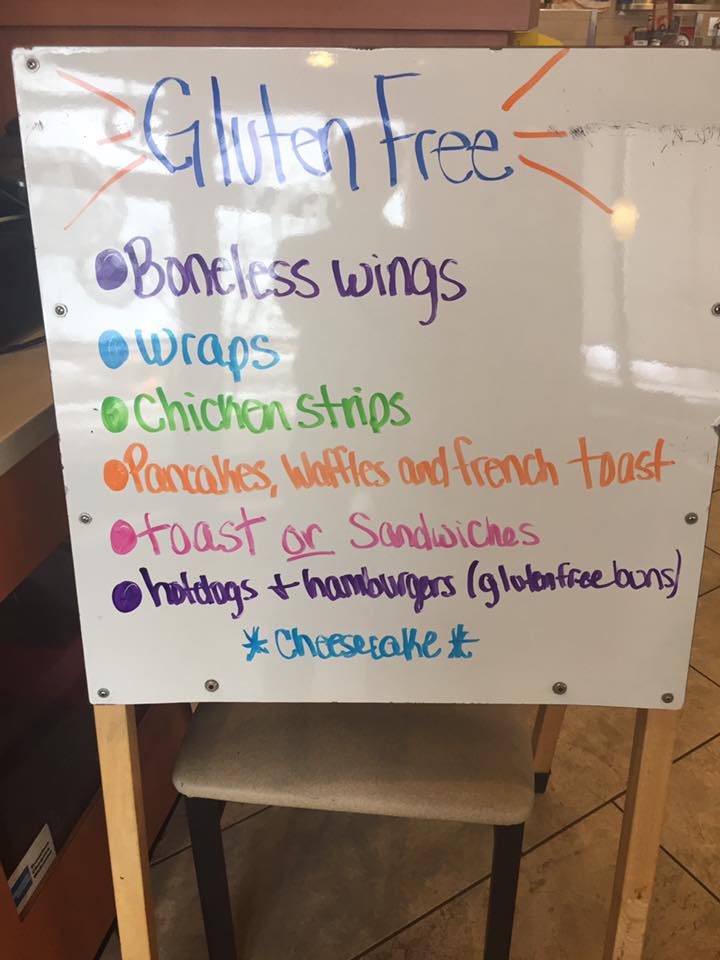 Gluten Free
•Boneless wings
•wraps
•Chicken strips
•Pancakes, Waffles and french toast
•toast or Sandwiches
•hotdogs + hamburgers (gluten free buns)
*Cheesecake*